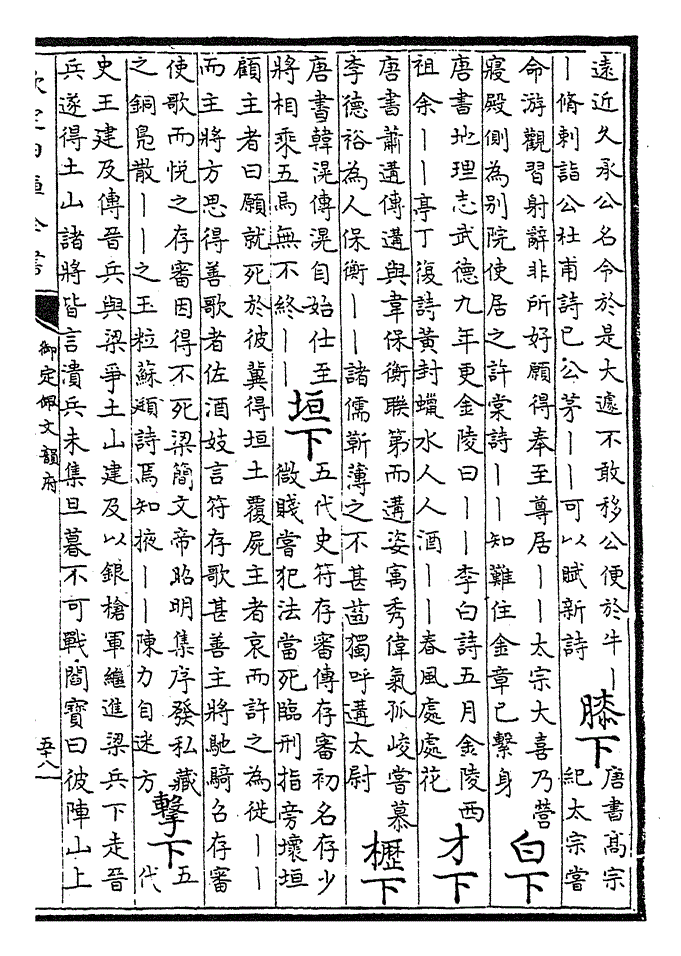 遠近久承公名令於是大遽不敢移公便於牛丨
丨脩刺詣公杜甫詩已公茅丨丨可以賦新詩
膝下
唐書高宗
紀太宗嘗
命游觀習射辭非所好願得奉至尊居丨丨太宗大喜乃營
寢殿側為別院使居之許棠詩丨丨知難住金章已繫身
白下
唐書地理志武德九年更金陵曰丨丨李白詩五月金陵西
祖余丨丨亭丁復詩黃封蠟水人人酒丨丨春風處處花
才下
唐書蕭遘傳遘與韋保衡聯第而遘姿寓秀偉氣孤峻嘗慕
李德裕為人保衡丨丨諸儒靳薄之不甚齒獨呼遘太尉
櫪下
唐書韓滉傳滉自始仕至
將相乘五馬無不終丨丨
垣下
五代史符存審傳存審初名存少
微賤嘗犯法當死臨刑指旁壞垣
顧主者曰願就死於彼冀得垣土覆屍主者哀而許之為徙丨丨
而主將方思得善歌者佐酒妓言符存歌甚善主將馳騎召存審
使歌而悦之存審因得不死梁簡文帝昭明集序發私藏
之銅鳧散丨丨之玉粒蘇頲詩焉知掖丨丨陳力自迷方
擊下
五
代
史王建及傳晉兵與梁爭土山建及以銀槍軍繼進梁兵下走晉
兵遂得土山諸將皆言潰兵未集旦暮不可戰閻寶曰彼陣山上
欽定四庫全書
御定佩文韻府
五十八